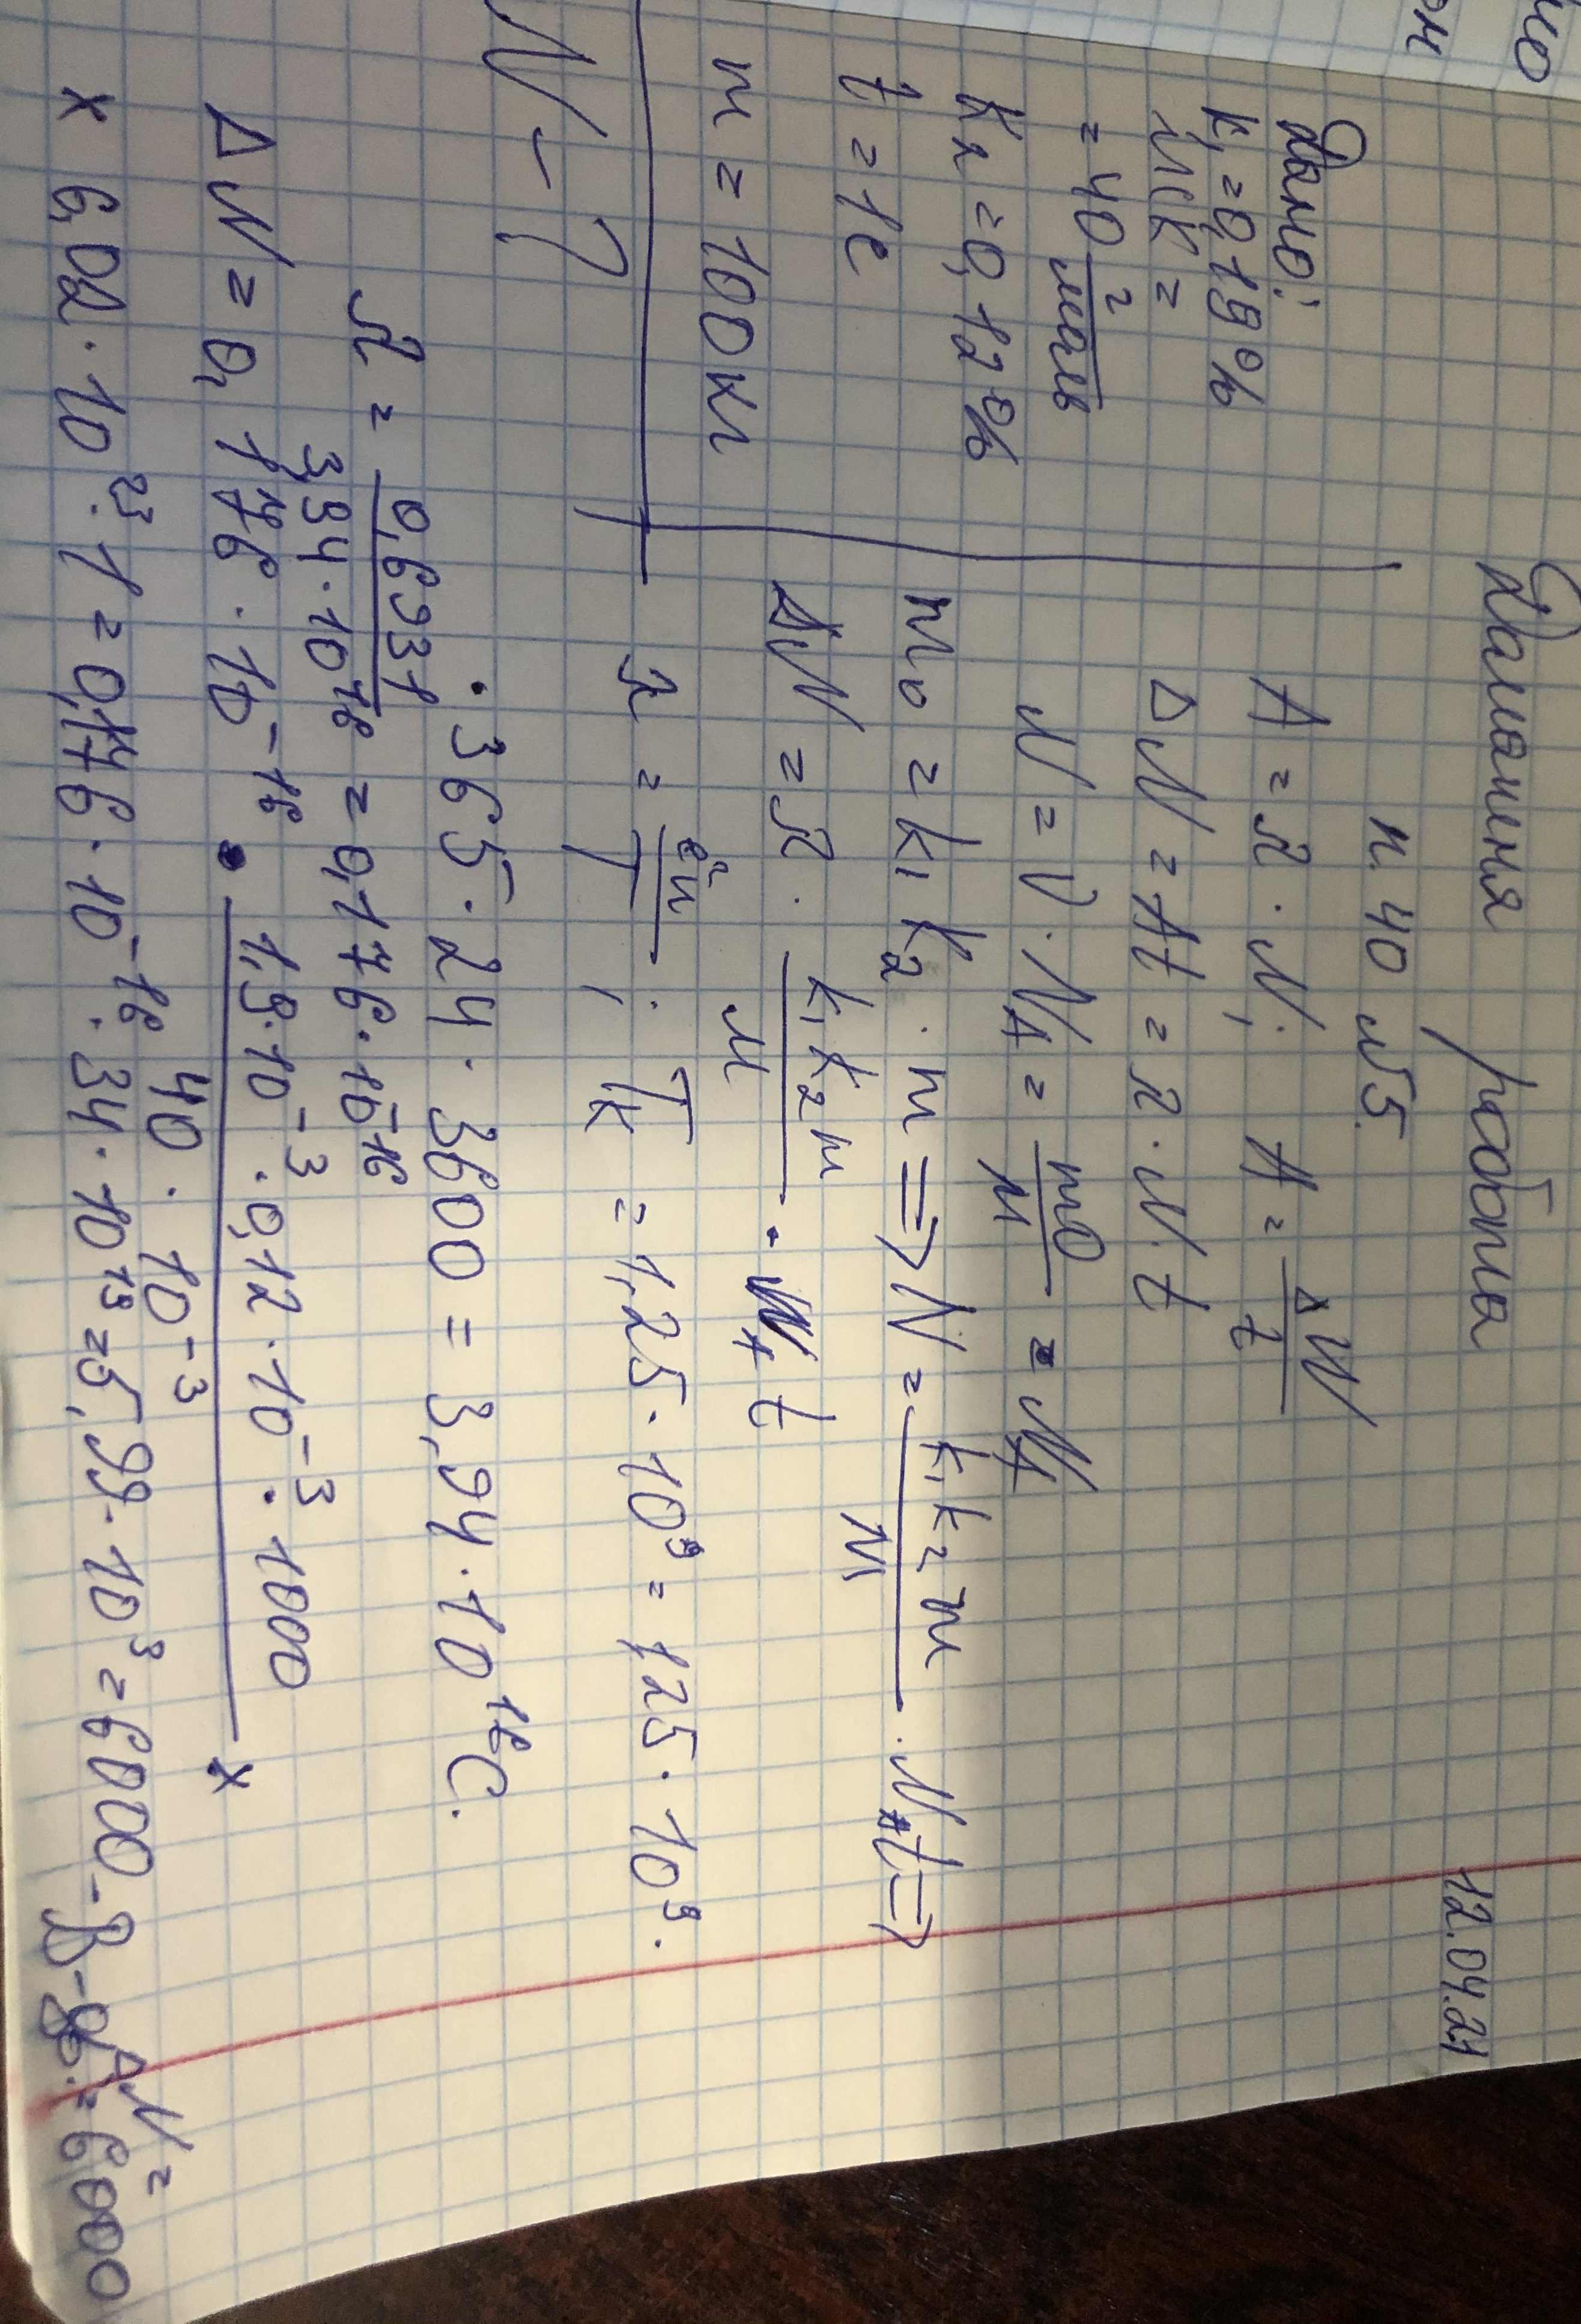 12.04.21
Домашня работа
п. 40 №5.
Дано:
k₁ = 0,19%
Mк =
= 40 г/моль
k₂ = 0,12%
t = 1c
m = 100 кг
N - ?
A = λ · N; A = ΔN/t
ΔN = At = λ · N · t
N = ν · N_A = m₀/M · N_A
m₀ = k₁ k₂ · m ⇒ N = k₁ k₂ m/M · N_A t ⇒
ΔN = λ · k₁ k₂ m/M · N_A t
λ = ln/T ; T_K = 1,25 · 10⁹ = 125 · 10⁹ ·
· 365 · 24 · 3600 = 3,94 · 10¹⁶ c.
λ = 0,6931/3,94 · 10¹⁶ = 0,176 · 10⁻¹⁶
ΔN = 0,176 · 10⁻¹⁶ · 1,9 · 10⁻³ · 0,12 · 10⁻³ · 1000/40 · 10⁻³ ×
× 6,02 · 10²³ · 1 = 0,176 · 10⁻¹⁶ · 34 · 10¹⁹ = 5,99 · 10³ = 6000
ΔN =
= 6000